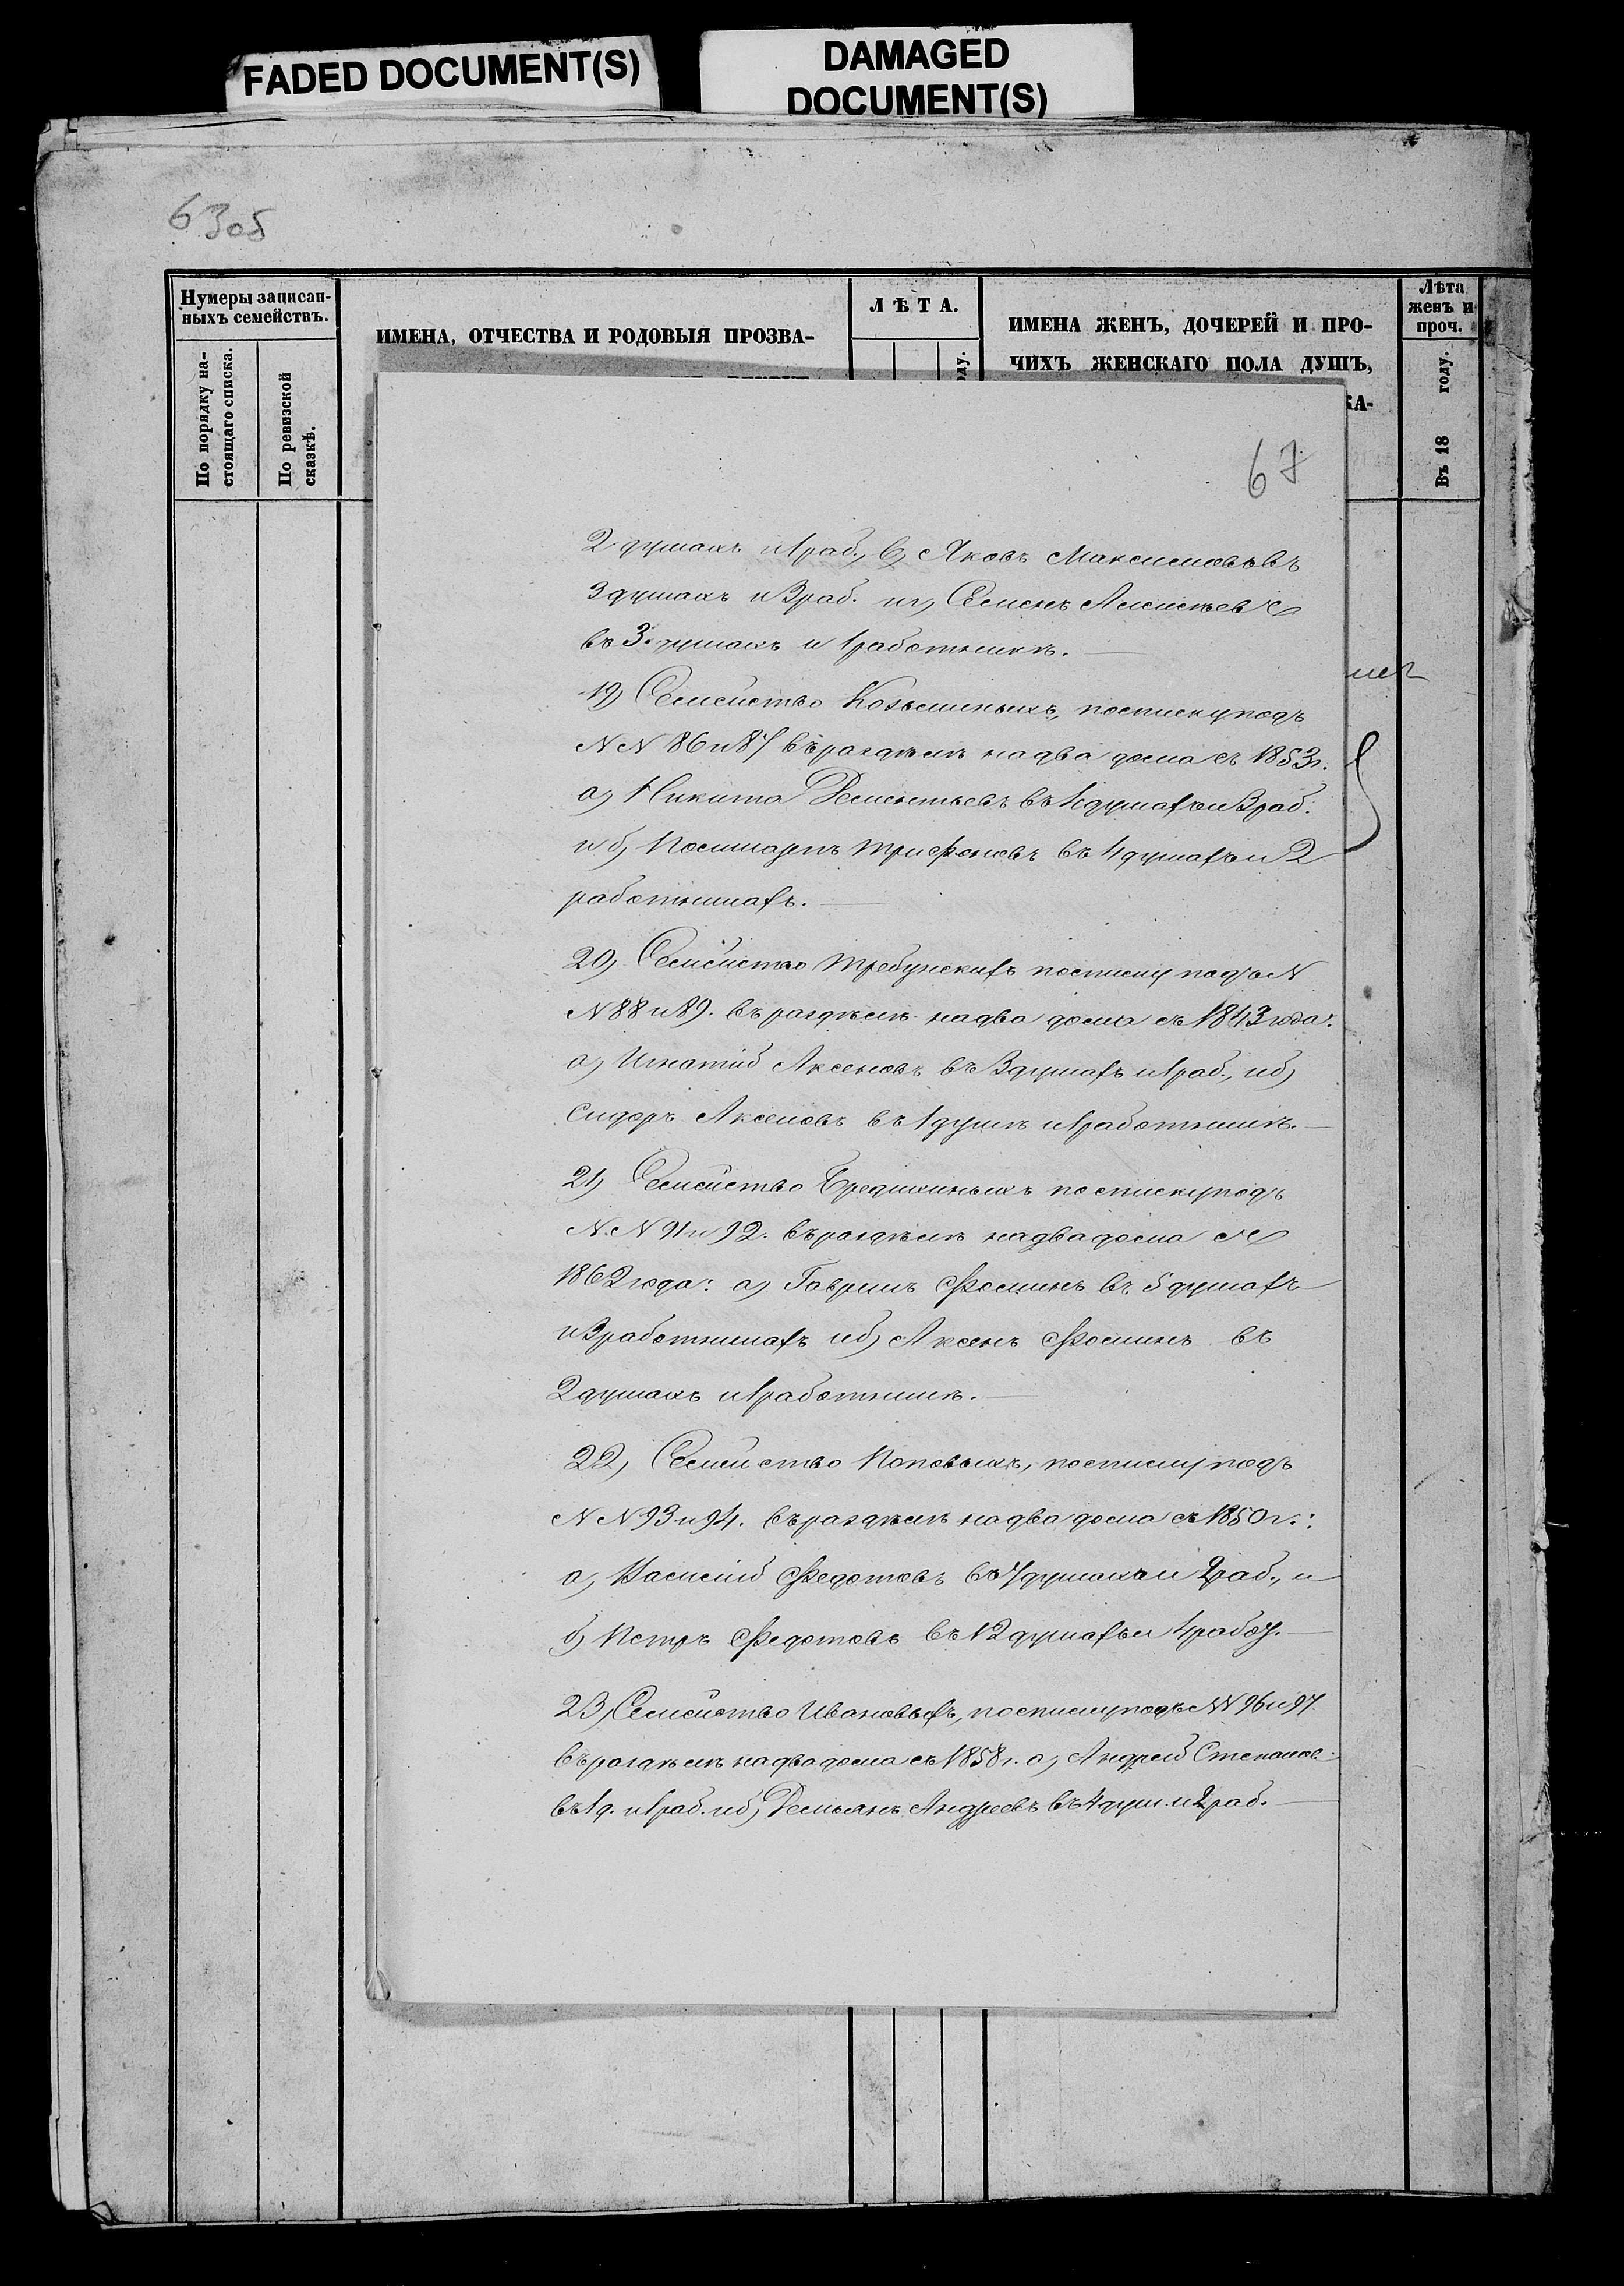 FADED DOCUMENT(S)
DAMAGED
DOCUMENT(S)
63об
Нумеры записан-
ныхъ семействъ.
По порядку на-
стоящаго списка.
По ревизской
сказкѣ.
ИМЕНА, ОТЧЕСТВА И РОДОВЫЯ ПРОЗВА-
ЛѢТА.
оду.
ИМЕНА ЖЕНЪ, ДОЧЕРЕЙ И ПРО-
ЧИХЪ ЖЕНСКАГО ПОЛА ДУШЪ,
КА-
Лѣта
женъ и
проч.
Въ 18 году.
67
2 душахъ и 1 раб., в) Яковъ Максимовъ въ
3 душахъ и 3 раб. и г) Семенъ съ
въ 3 душахъ и 1 работникѣ.
19) Семейство Козьминыхъ, по списку подъ
NN 86 и 87 въ раздѣлѣ на два дома съ 1853 г.
а) Никита Дементьевъ въ 4 душахъ и 3 раб.
и б) Трифоновъ въ 4 душахъ и 2
работникахъ.
20) Семейство Требунскихъ по списку подъ N
N 88 и 89. въ раздѣлѣ на два дома съ 1843 года:
а) Игнатій Аксеновъ въ 3 душахъ и 1 раб., и б)
Сидоръ Аксеновъ въ 1 душѣ и 1 работникѣ.
21) Семейство Бредихиныхъ по списку подъ
N.N 91 и 92. въ раздѣлѣ на два дома съ
1862 года: а) Гаврилъ Фоминъ въ 5 душахъ
и 3 работникахъ и б) Аксенъ Фоминъ въ
2 душахъ и 1 работникѣ.
22) Семейство Поповыхъ, по списку подъ
N N 93 и 94. въ раздѣлѣ на два дома съ 1850 г.:
а) Василій Федотовъ въ 7 душахъ и 2 раб., и
б) Петръ Федотовъ въ 12 душахъ и 4 рабоч.
23) Семейство Ивановыхъ, по списку подъ NN 96 и 97.
въ раздѣлѣ на два дома съ 1858 г. а) Андрей Степанов.
въ 1 д. и 1 раб. и б) Демьянъ Андреевъ въ 4 душ. и 2 раб.